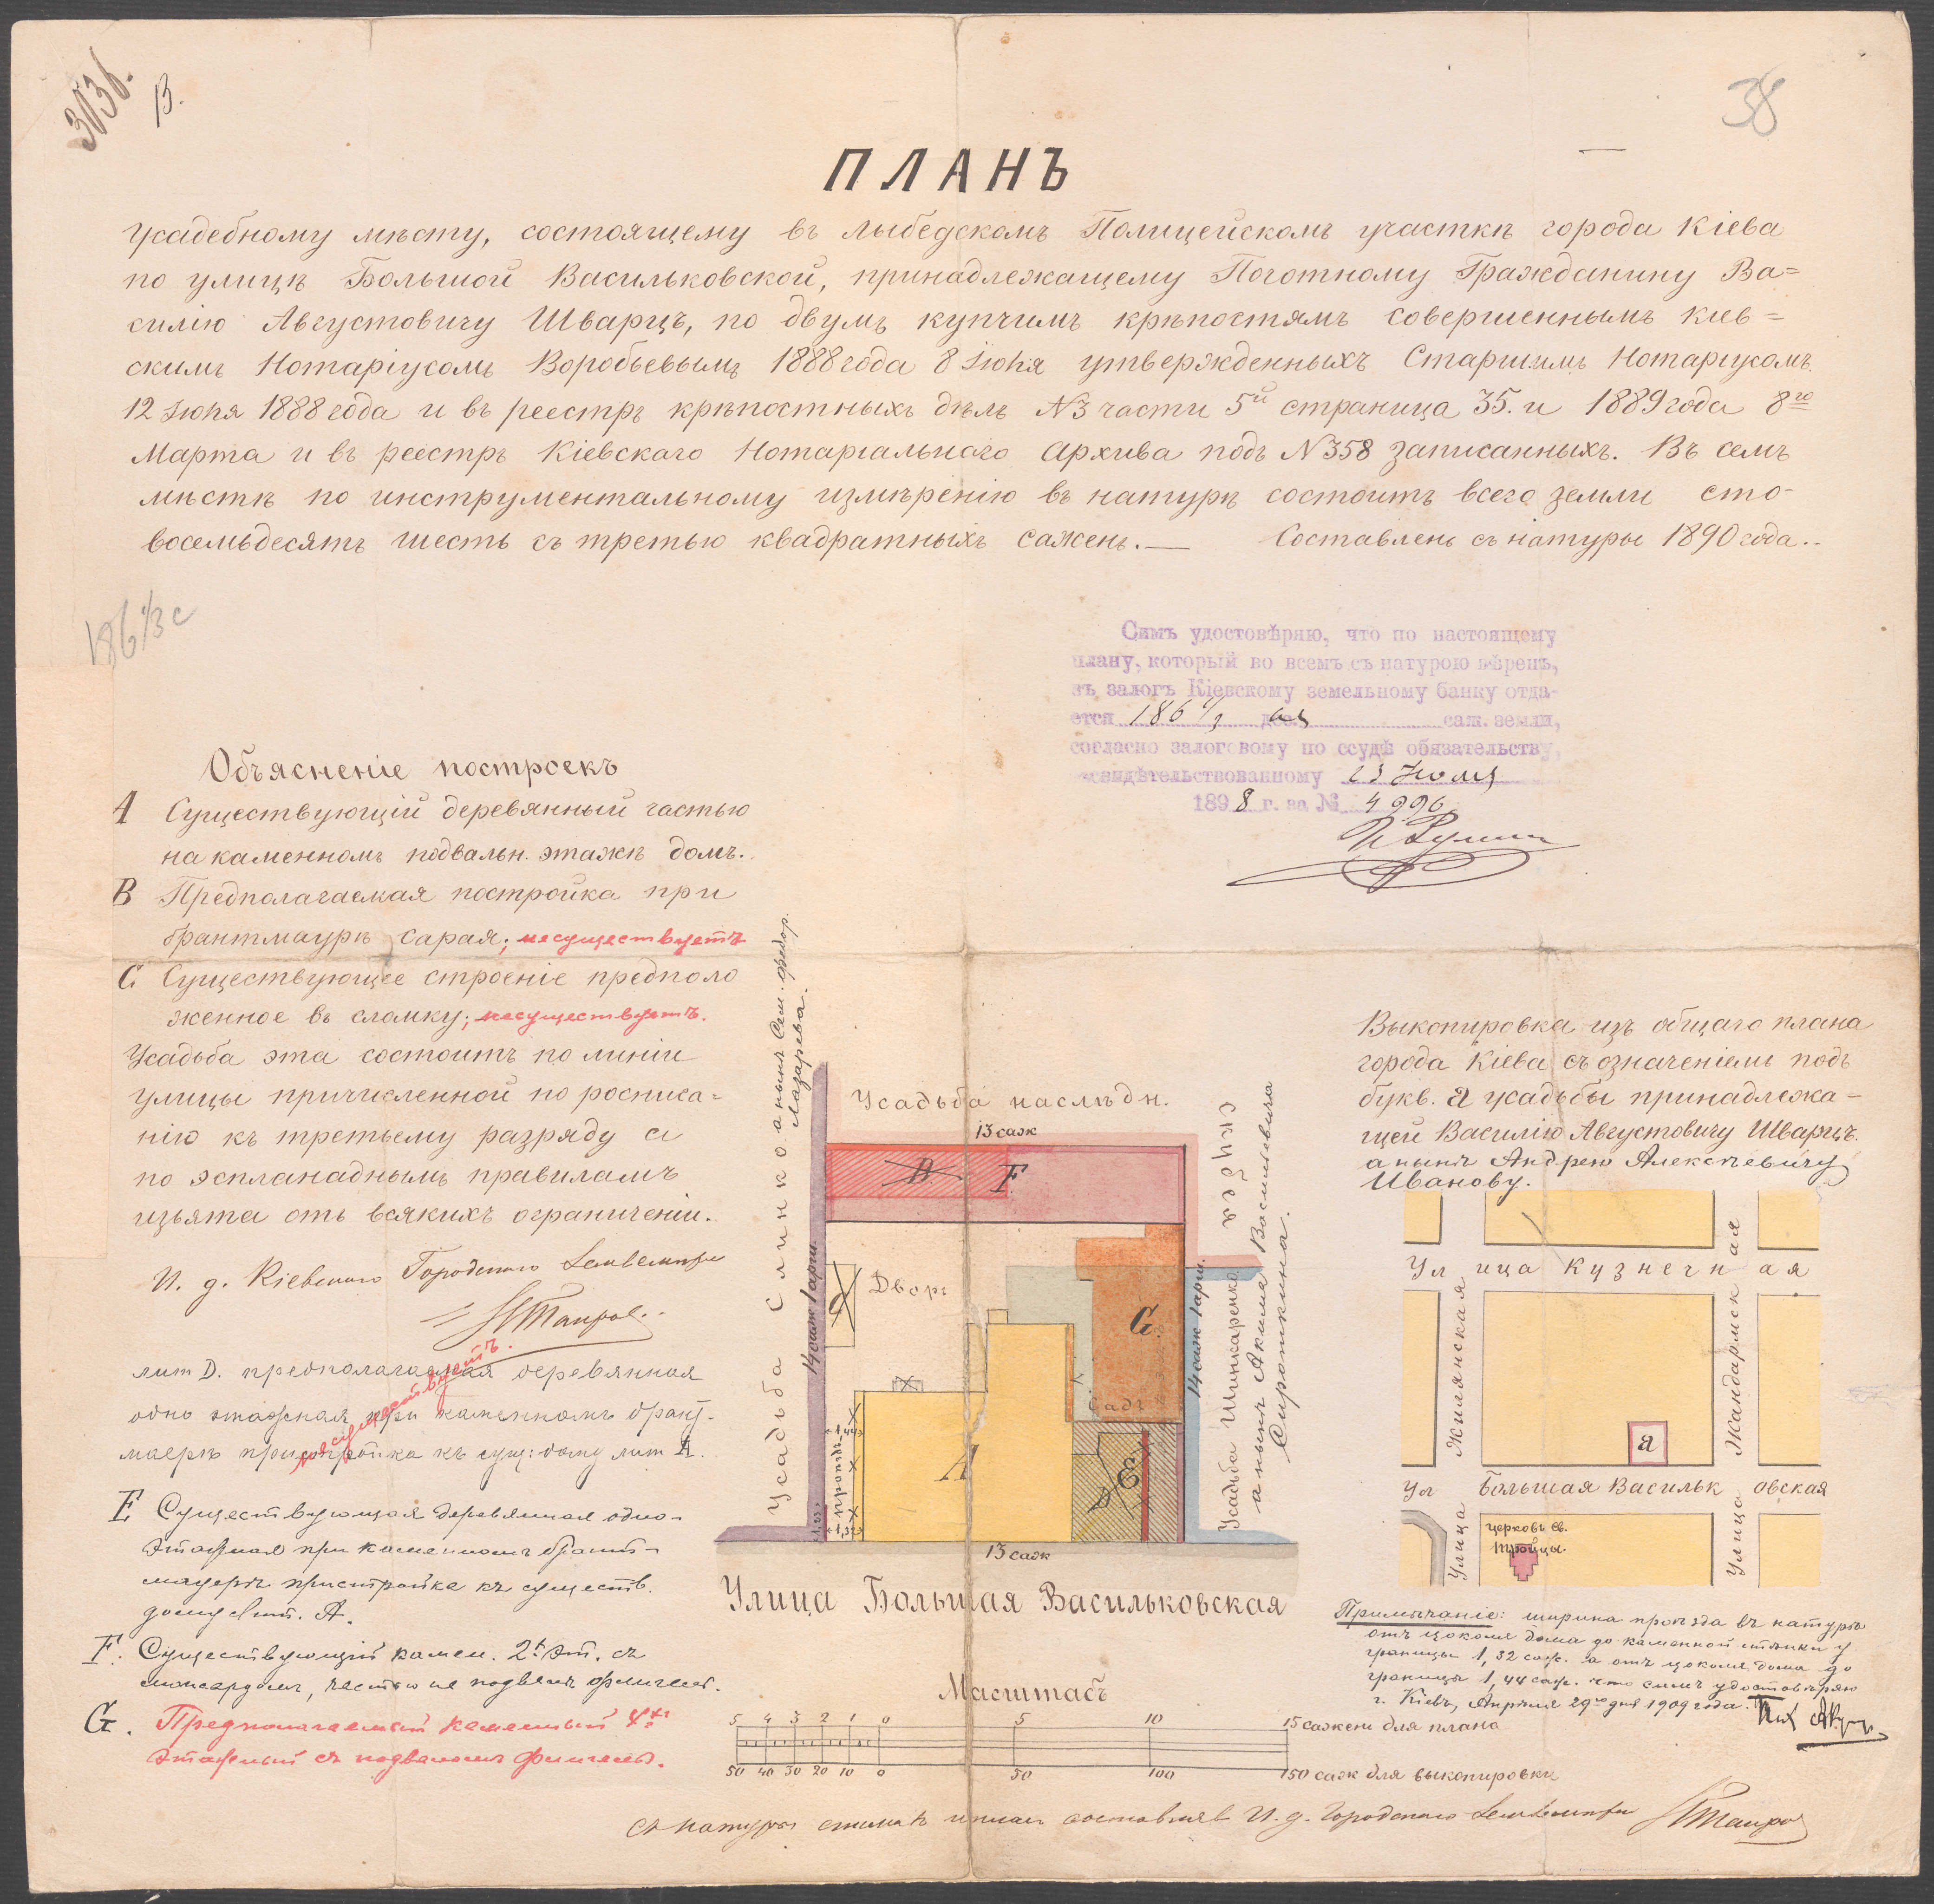 3036.
В.
38
ПЛАНЪ
усадебному мѣсту, состоящему въ Лыбедскомъ Полицейскомъ участкѣ города Кіева
по улицѣ Большой Васильковской, принадлежащему Потомному Гражданину Ва=
силію Августовичу Шварцъ, по двумъ купчимъ крѣпостямъ совершеннымъ кіев=
скимъ Нотаріусомъ Воробьевымъ 1888 года 8 Іюня утвержденныхъ Старшимъ Нотаріусомъ
12 Іюня 1888 года и въ реестръ крѣпостныхъ дѣлъ №3 части 5й страница 35. и 1889 года 8го
Марта и въ реестръ Кіевскаго Нотаріальнаго Архива подъ №358 записанныхъ. Въ семъ
мѣстѣ по инструментальному измѣренію въ натурѣ состоитъ всего земли сто-
восемьдесятъ шесть съ третью квадратныхъ сажень.— Составленъ съ натуры 1890 года..
186 1/3 с
Симъ удостовѣряю, что по настоящему
плану, который во всемъ съ натурою вѣренъ,
въ залогъ Кіевскому земельному банку отда-
ется 186 1/3 дес. саж. земли,
согласно залоговому по ссудѣ обязательству,
засвидѣтельствованному 23 Іюля
1898 г. за № 4996
Объясненіе построекъ
А Существующій деревянный частью
на каменномъ подвальн. этажѣ домъ.
В Предполагаемая постройка при
брантмаурѣ сарая; несуществуетъ
С Существующее строеніе предполо
женное въ сломку; несуществуетъ.
Усадьба эта состоитъ по линіи
улицы причисленной по росписа=
нію къ третьему разряду а
по эспланаднымъ правиламъ
изъята отъ всякихъ ограниченій.
И. д. Кіевскаго Городского Землемѣра
лит D. предполагаемая деревянная
одно этажная при каменномъ бранд-
маерѣ пристройка къ сущ: дому лит А.
несуществуетъ.
Е Существующая деревянная одно-
этажная при каменномъ брант-
мауерѣ пристройка къ существ.
дому лит. А.
F. Существующій камен. 2х эт. съ
мансардомъ, частью на подвалѣ флигель.
G. Предполагаемый каменный 4х
этажный съ подваломъ флигель.
Усадьба Слинко а нынѣ Сем. Федор.
Лазарева.
Усадьба наслѣдн.
13 саж
В
F
С
Дворъ
14 саж 1 арш.
G.
14 саж 1 арш.
Садъ
А
проѣздъ
D
Е
13 саж
Усадьба Шинкаренко
а нынѣ Якима Васильевича
Сиропкина.
Улица Большая Васильковская
Выкопировка изъ общаго плана
города Кіева съ означеніемъ подъ
букв. а усадьбы принадлежа=
щей Василію Августовичу Шварцъ.
а нынѣ Андрею Алексѣевичу
Иванову.
Улица Кузнечная
Жилянская
Улица
Жандармская
Улица
а
Ул Большая Васильковская
церковь св.
Тройцы.
Примѣчаніе: ширина проѣзда въ натурѣ
отъ цоколя дома до каменной стѣнки у
границы 1,32 саж. а отъ цоколя дома до
границы 1,44 саж. что симъ удостовѣряю
г. Кіевъ, Апрѣля 29го дня 1909 года.
Масштабъ
5 4 3 2 1 0 5 10 15 сажени для плана
50 40 30 20 10 0 50 100 150 саж для выкопировки
Съ натуры снималъ и планъ составлялъ И. д. Городского Землемѣра